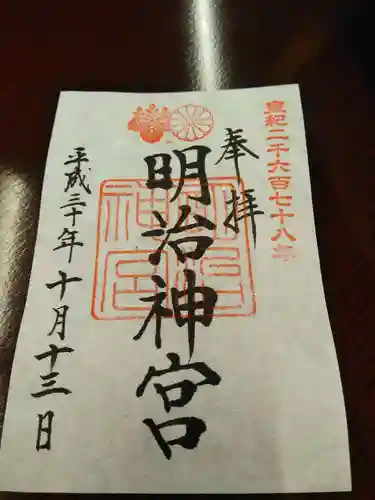 皇紀二千六百七十八年
奉拝
明治神宮
平成三十年十月十三日